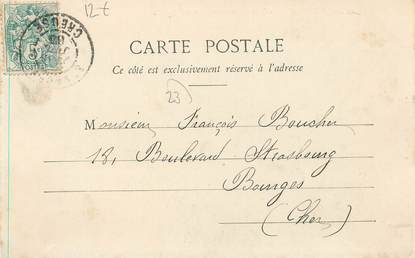 12 €
CREUSE
CARTE POSTALE
Ce côté est exclusivement réservé à l'adresse
23
Monsieur François Boucher
18, Boulevard Strasbourg
Bourges
(Cher)